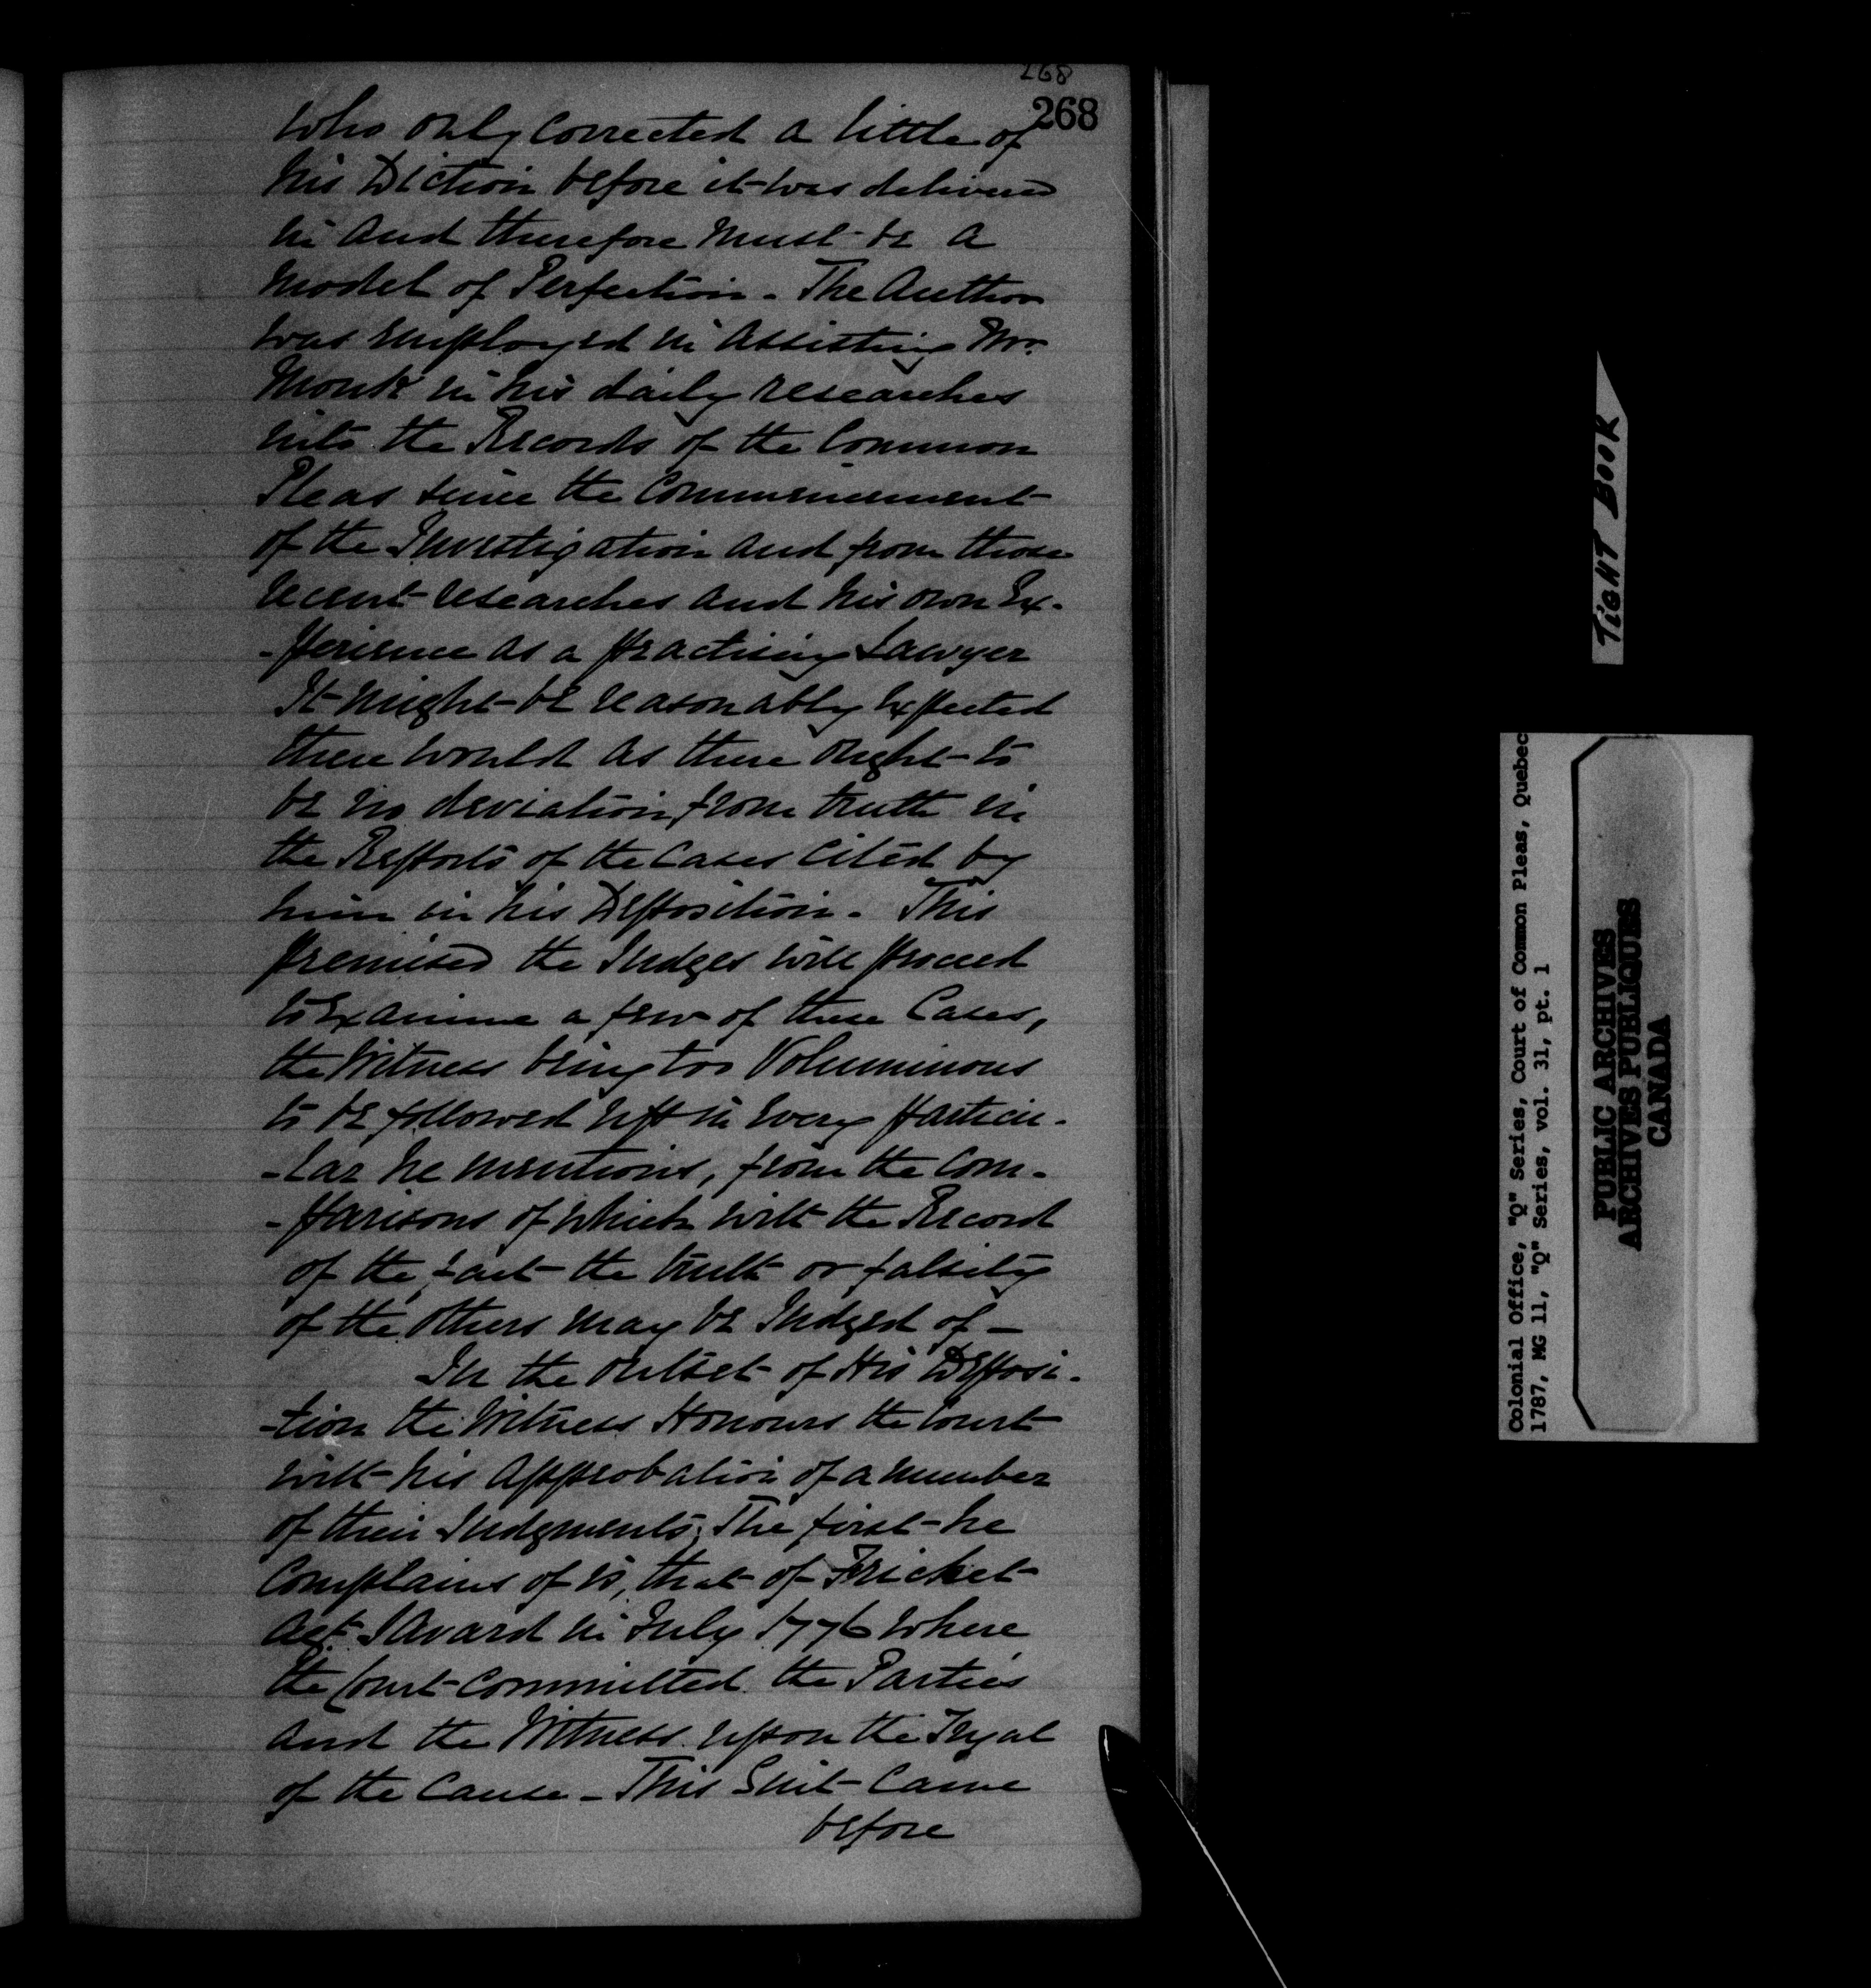 268
268
who only corrected a little of
his Diction before it was delivered
in and therefore must be a
model of Perfection - The Author
was employed in assisting Mr.
Monk in his daily researches
into the Records of the Common
Pleas since the Commencement
of the Investigation and from those
recent researches and his own Ex-
-perience as a practising Lawyer
It might be reasonably Expected
there would as there ought to
be no deviation from truth in
the Reports of the Cases Cited by
him in his Deposition. This
premised the Judges will proceed
to Examine a few of these Cases,
the Witness being too Voluminous
to be followed up in every particu-
-lar he mentions, from the Com-
-parisons of which with the Record
of the fact the truth or falsity
of the others may be Judged of -
In the outset of His Deposi-
-tion the Witness Honours the Court
with his Approbation of a number
of their Judgments; The first he
Complains of is, that of Frichet
agt. Savard in July 1776 where
the Court Committed the Parties
and the Witness upon the Tryal
of the Cause - This Suit Came
before
TIGHT BOOK
Colonial Office, "Q" Series, Court of Common Pleas, Quebec
1787, MG 11, "Q" Series, vol. 31, pt. 1
PUBLIC ARCHIVES
ARCHIVES PUBLIQUES
CANADA